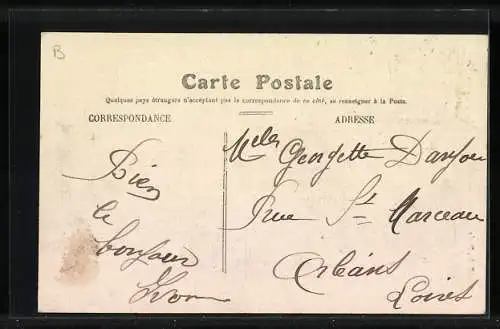 B
Carte Postale
Quelques pays étrangers n'acceptant pas la correspondance de ce côté, se renseigner à la Poste.
CORRESPONDANCE
Bien
le
bonjour
Yvonne
ADRESSE
Melle Georgette Danjou
Rue St Marceau
Orléans
Loiret